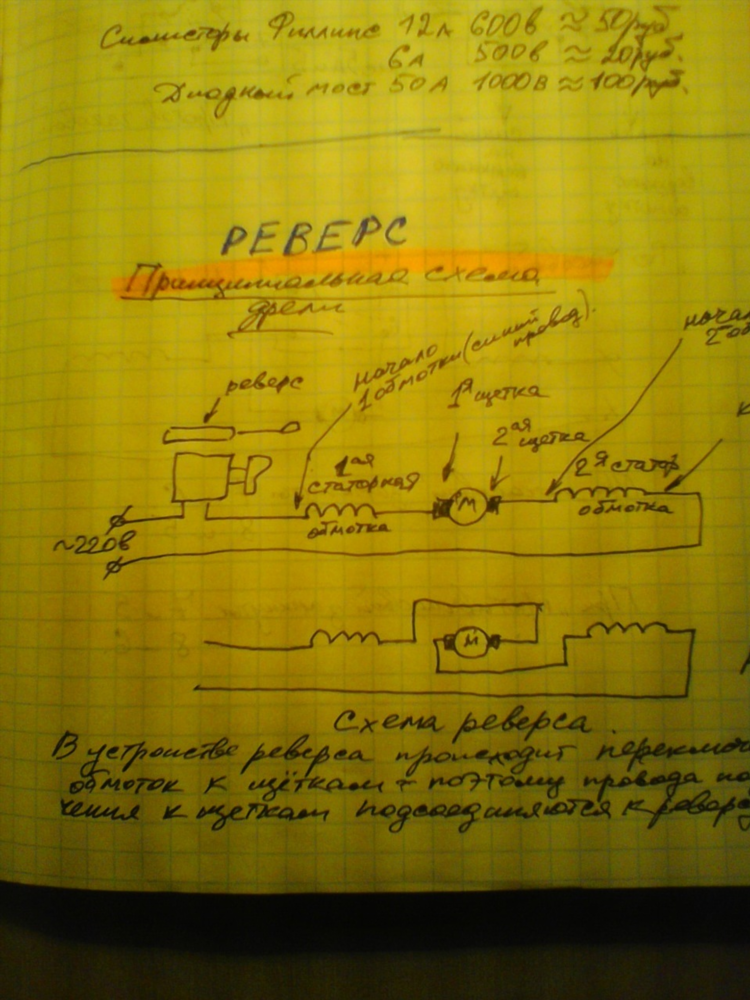 Симисторы Филлипс 12А 600в ≈ 50руб
6А 500в ≈ 20руб.
Диодный мост 50А 1000В ≈ 100руб.
РЕВЕРС
Принципиальная схема
дрели
начало
1 обмотки (синий
провод).
начал
2ой об
реверс
1я щетка
2ая
щетка
к
1ая
статорная
обмотка
2я статор
обмотка
М
~220в
М
Схема реверса.
В устройстве реверса происходит переключ
обмоток к щёткам - поэтому провода по
чения к щеткам подсоединяются к реверс